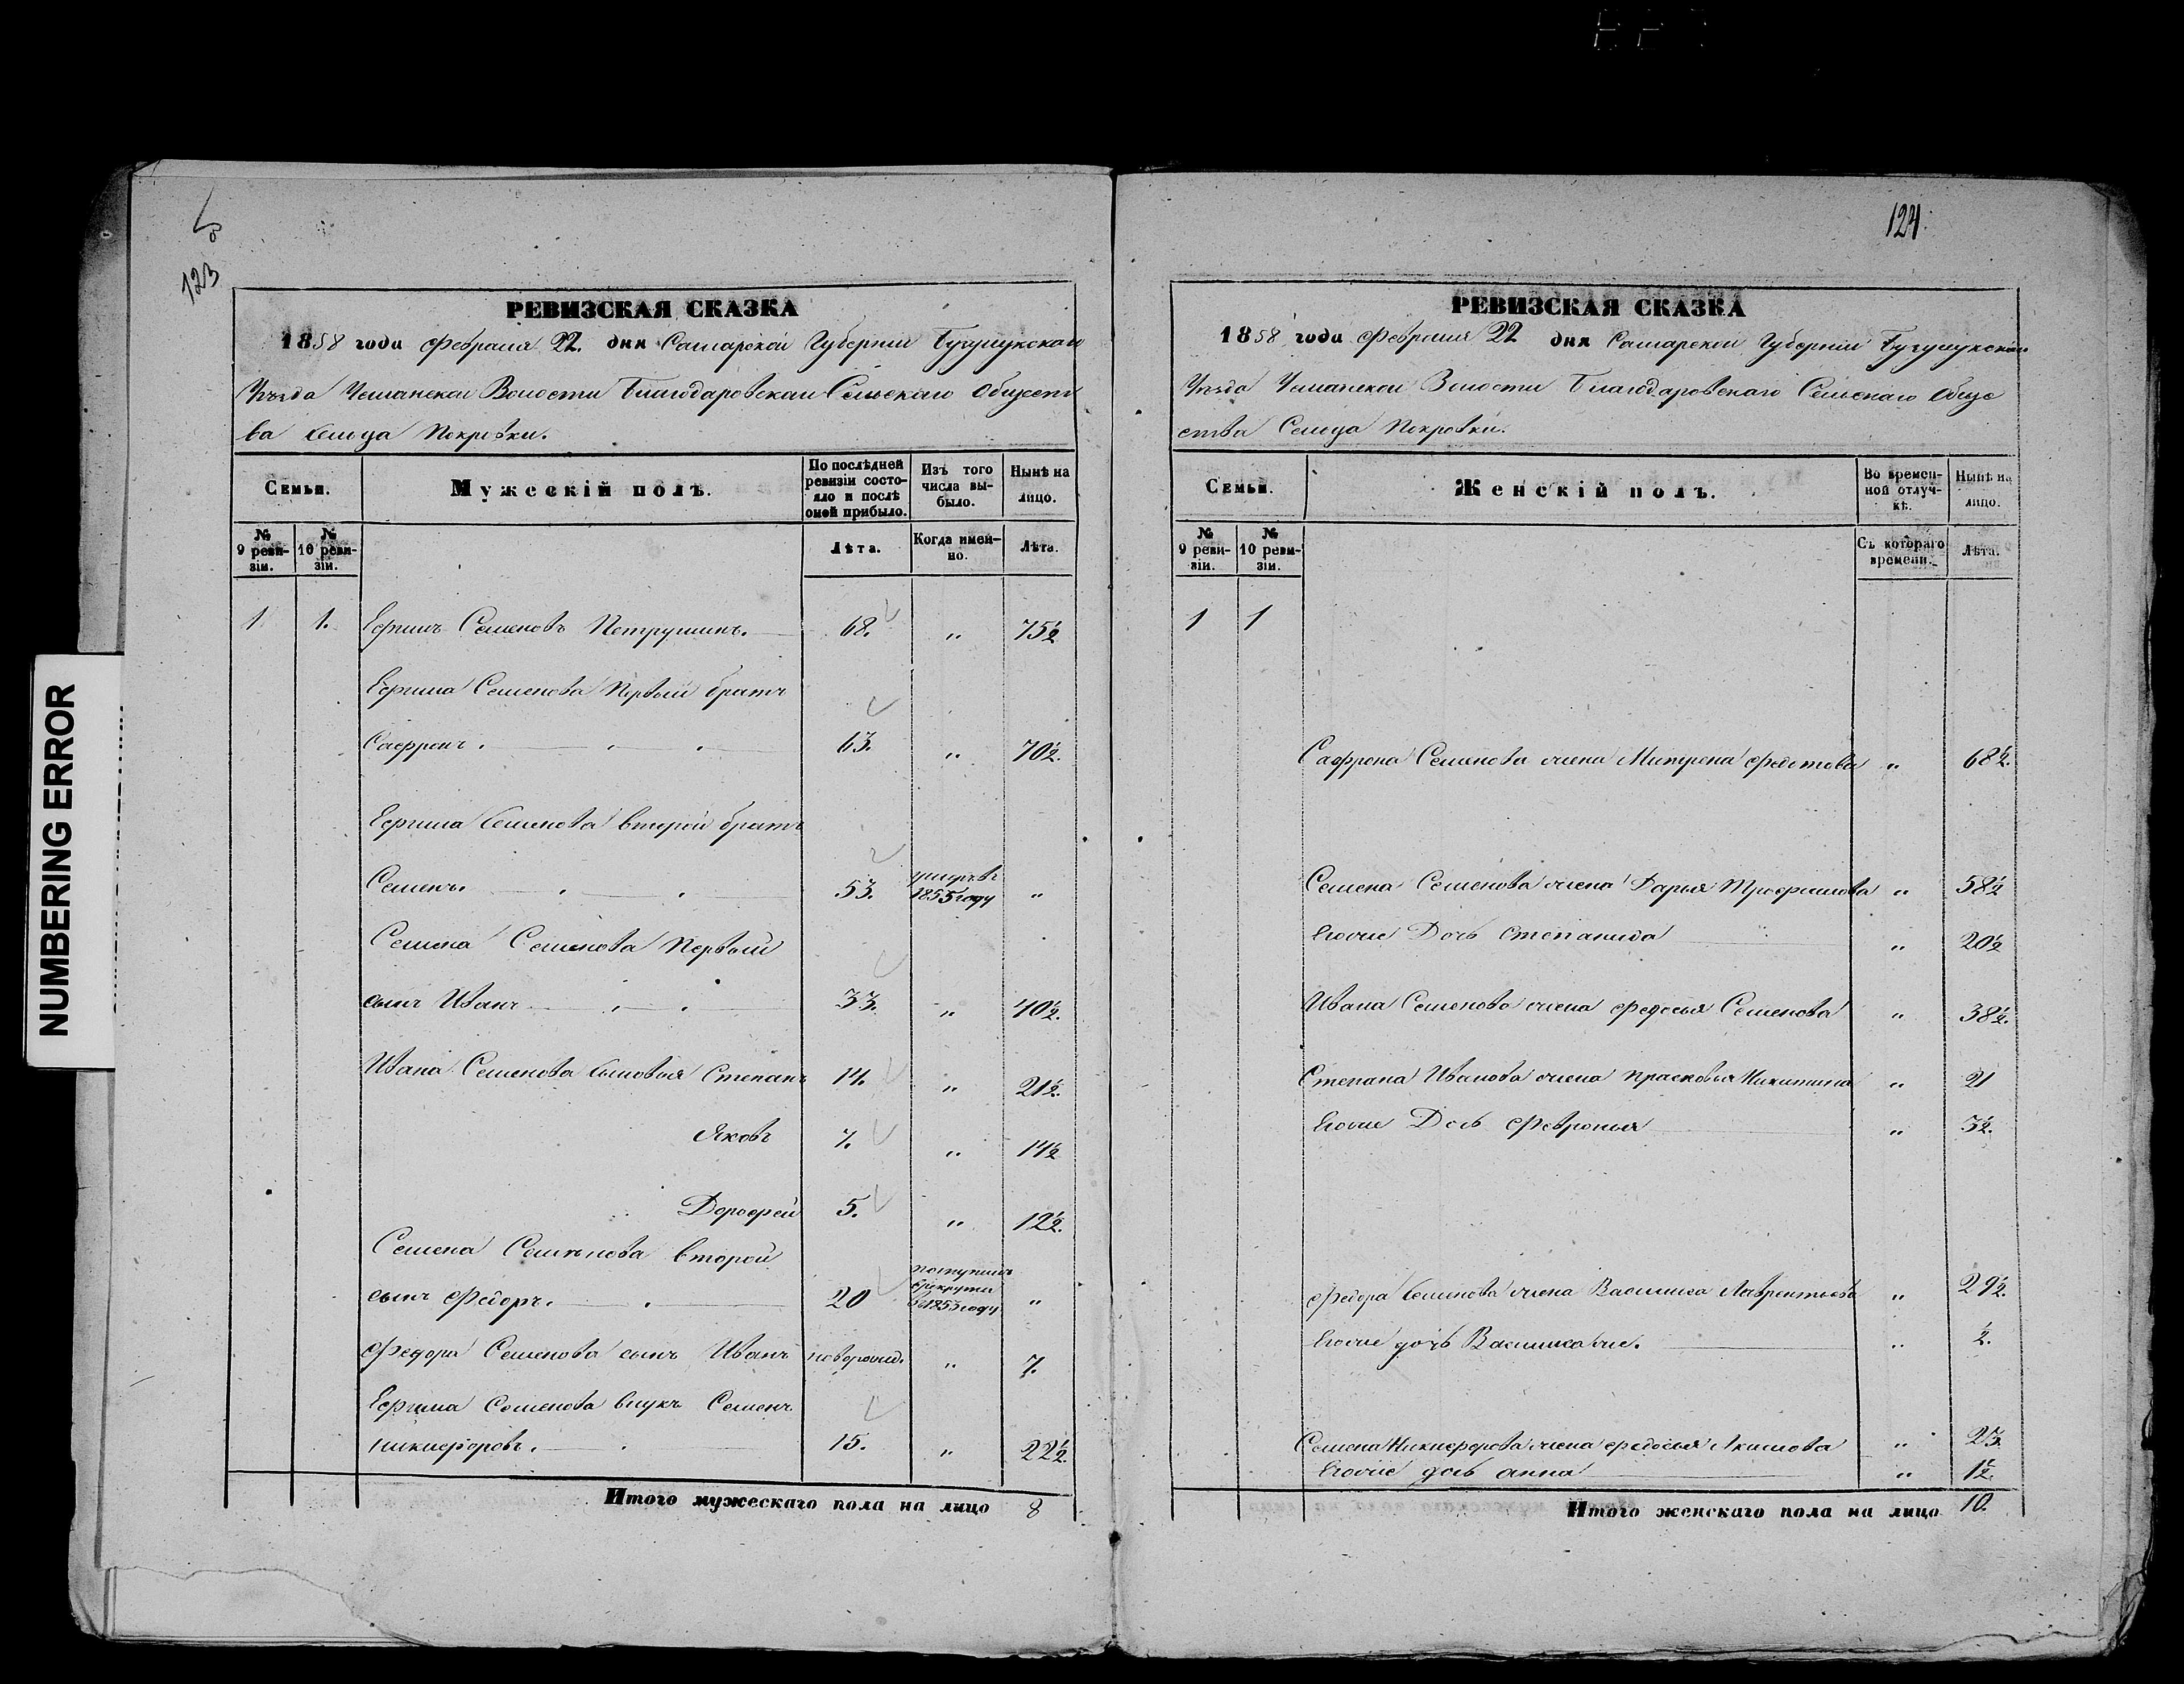 NUMBERING ERROR
123
РЕВИЗСКАЯ СКАЗКА
1858 года Февраля 22. дня Самарской Губернии Бугурусланской
Уѣзда Волости Благодаровскаго Сельскаго Общест
ва Сельца Покровки.
Семьи.
Мужескій полъ.
По послѣдней ревизіи состояло и послѣ оной прибыло.
Изъ того числа выбыло.
Нынѣ на лицо.
№ 9 ревизіи.
№ 10 ревизіи.
Лѣта.
Когда именно.
Лѣта.
1 1. Ефимъ Семеновъ Петрушинъ. 68. „ 75½
Ефима Семенова Первый братъ
Сафронъ. 63. „ 70½.
Ефима Семенова второй братъ
Семенъ. 53. умеръ въ 1855 году „
Семена Семенова Первый
сынъ Иванъ 33. „ 40½.
Ивана Семенова сыновья Степанъ 14. „ 21½.
Яковъ 7. „ 14½
Дорофей 5. „ 12½.
Семена Семенова второй
сынъ Федоръ. 20 поступилъ в рекруты в 1853 году „
Федора Семенова сынъ Иванъ новорожд. „ 7.
Ефима Семенова внукъ Семенъ
Никифоровъ. 15. „ 22½.
Итого мужескаго пола на лицо 8
124.
РЕВИЗСКАЯ СКАЗКА
1858 года Февраля 22 дня Самарской Губерніи
Уѣзда Волости Благодаровскаго Сельскаго Обще
ства Сельца Покровки.
Семьи.
Женскій полъ.
Во временной отлучкѣ.
Нынѣ на лицо.
№ 9 ревизіи.
№ 10 ревизіи.
Съ котораго времени.
Лѣта.
1 1
Сафрона Семенова жена Матрена Федотова „ 68½.
Семена Семенова жена Дарья Трофимова „ 58½
Егоже Дочь Степанида „ 20½
Ивана Семенова жена Федосья Семенова „ 38½.
Степана Иванова жена Прасковья Никитина „ 21
Егоже Дочь Февронья „ 3½.
Федора Семенова жена Василиса Лаврентьева „ 29½.
Егоже дочь „ ½.
Семена Никифорова жена Федосья Акимова „ 23
Егоже дочь Анна „ 1½.
Итого женскаго пола на лицо 10.